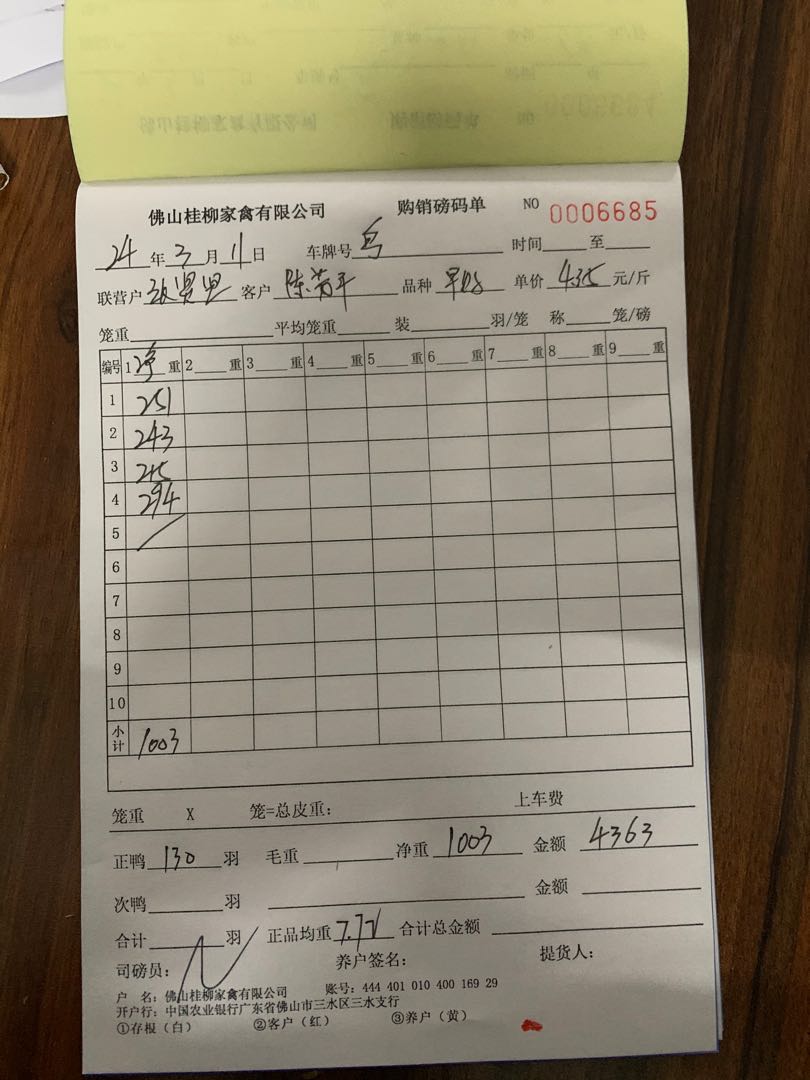 佛山桂柳家禽有限公司 购销磅码单 NO 0006685
24年3月11日 车牌号 时间 至
联营户 客户 陈 平 品种 单价 4.35 元/斤
笼重 平均笼重 装 羽/笼 称 笼/磅
编号 1净重 2 重 3 重 4 重 5 重 6 重 7 重 8 重 9 重
1 251
2 243
3 215
4 294
5
6
7
8
9
10
小计 1003
笼重 X 笼=总皮重: 上车费
正鸭 130 羽 毛重 净重 1003 金额 4363
次鸭 羽 金额
合计 羽 正品均重 7.72 合计总金额
司磅员: 养户签名: 提货人:
户 名: 佛山桂柳家禽有限公司 账号: 444 401 010 400 169 29
开户行: 中国农业银行广东省佛山市三水区三水支行
①存根(白) ②客户(红) ③养户(黄)